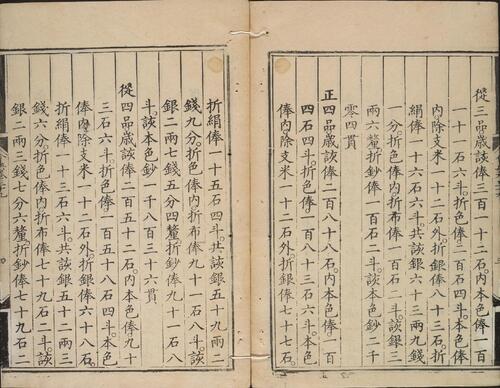 從三品歲該俸三百一十二石。內本色俸一百
一十一石六斗。折色俸二百石四斗。本色俸
內除支米一十二石。外折銀俸八十三石。折
絹俸一十六石六斗。共該銀六十三兩九錢
一分。折色俸內折布俸一百石二斗。該銀三
兩六釐。折鈔俸一百石二斗。該本色鈔二千
零四貫
正四品歲該俸二百八十八石。內本色俸一百
四石四斗。折色俸一百八十三石六斗。本色
俸內除支米一十二石。外折銀俸七十七石。
折絹俸一十五石四斗。共該銀五十九兩二
錢九分。折色俸內折布俸九十一石八斗。該
銀二兩七錢五分四釐。折鈔俸九十一石八
斗。該本色鈔一千八百三十六貫
從四品歲該俸二百五十二石。內本色俸九十
三石六斗。折色俸一百五十八石四斗。本色
俸內除支米一十二石。外折銀俸六十八石。
折絹俸一十三石六斗。共該銀五十二兩三
錢六分。折色俸內折布俸七十九石二斗。該
銀二兩三錢七分六釐。折鈔俸七十九石二